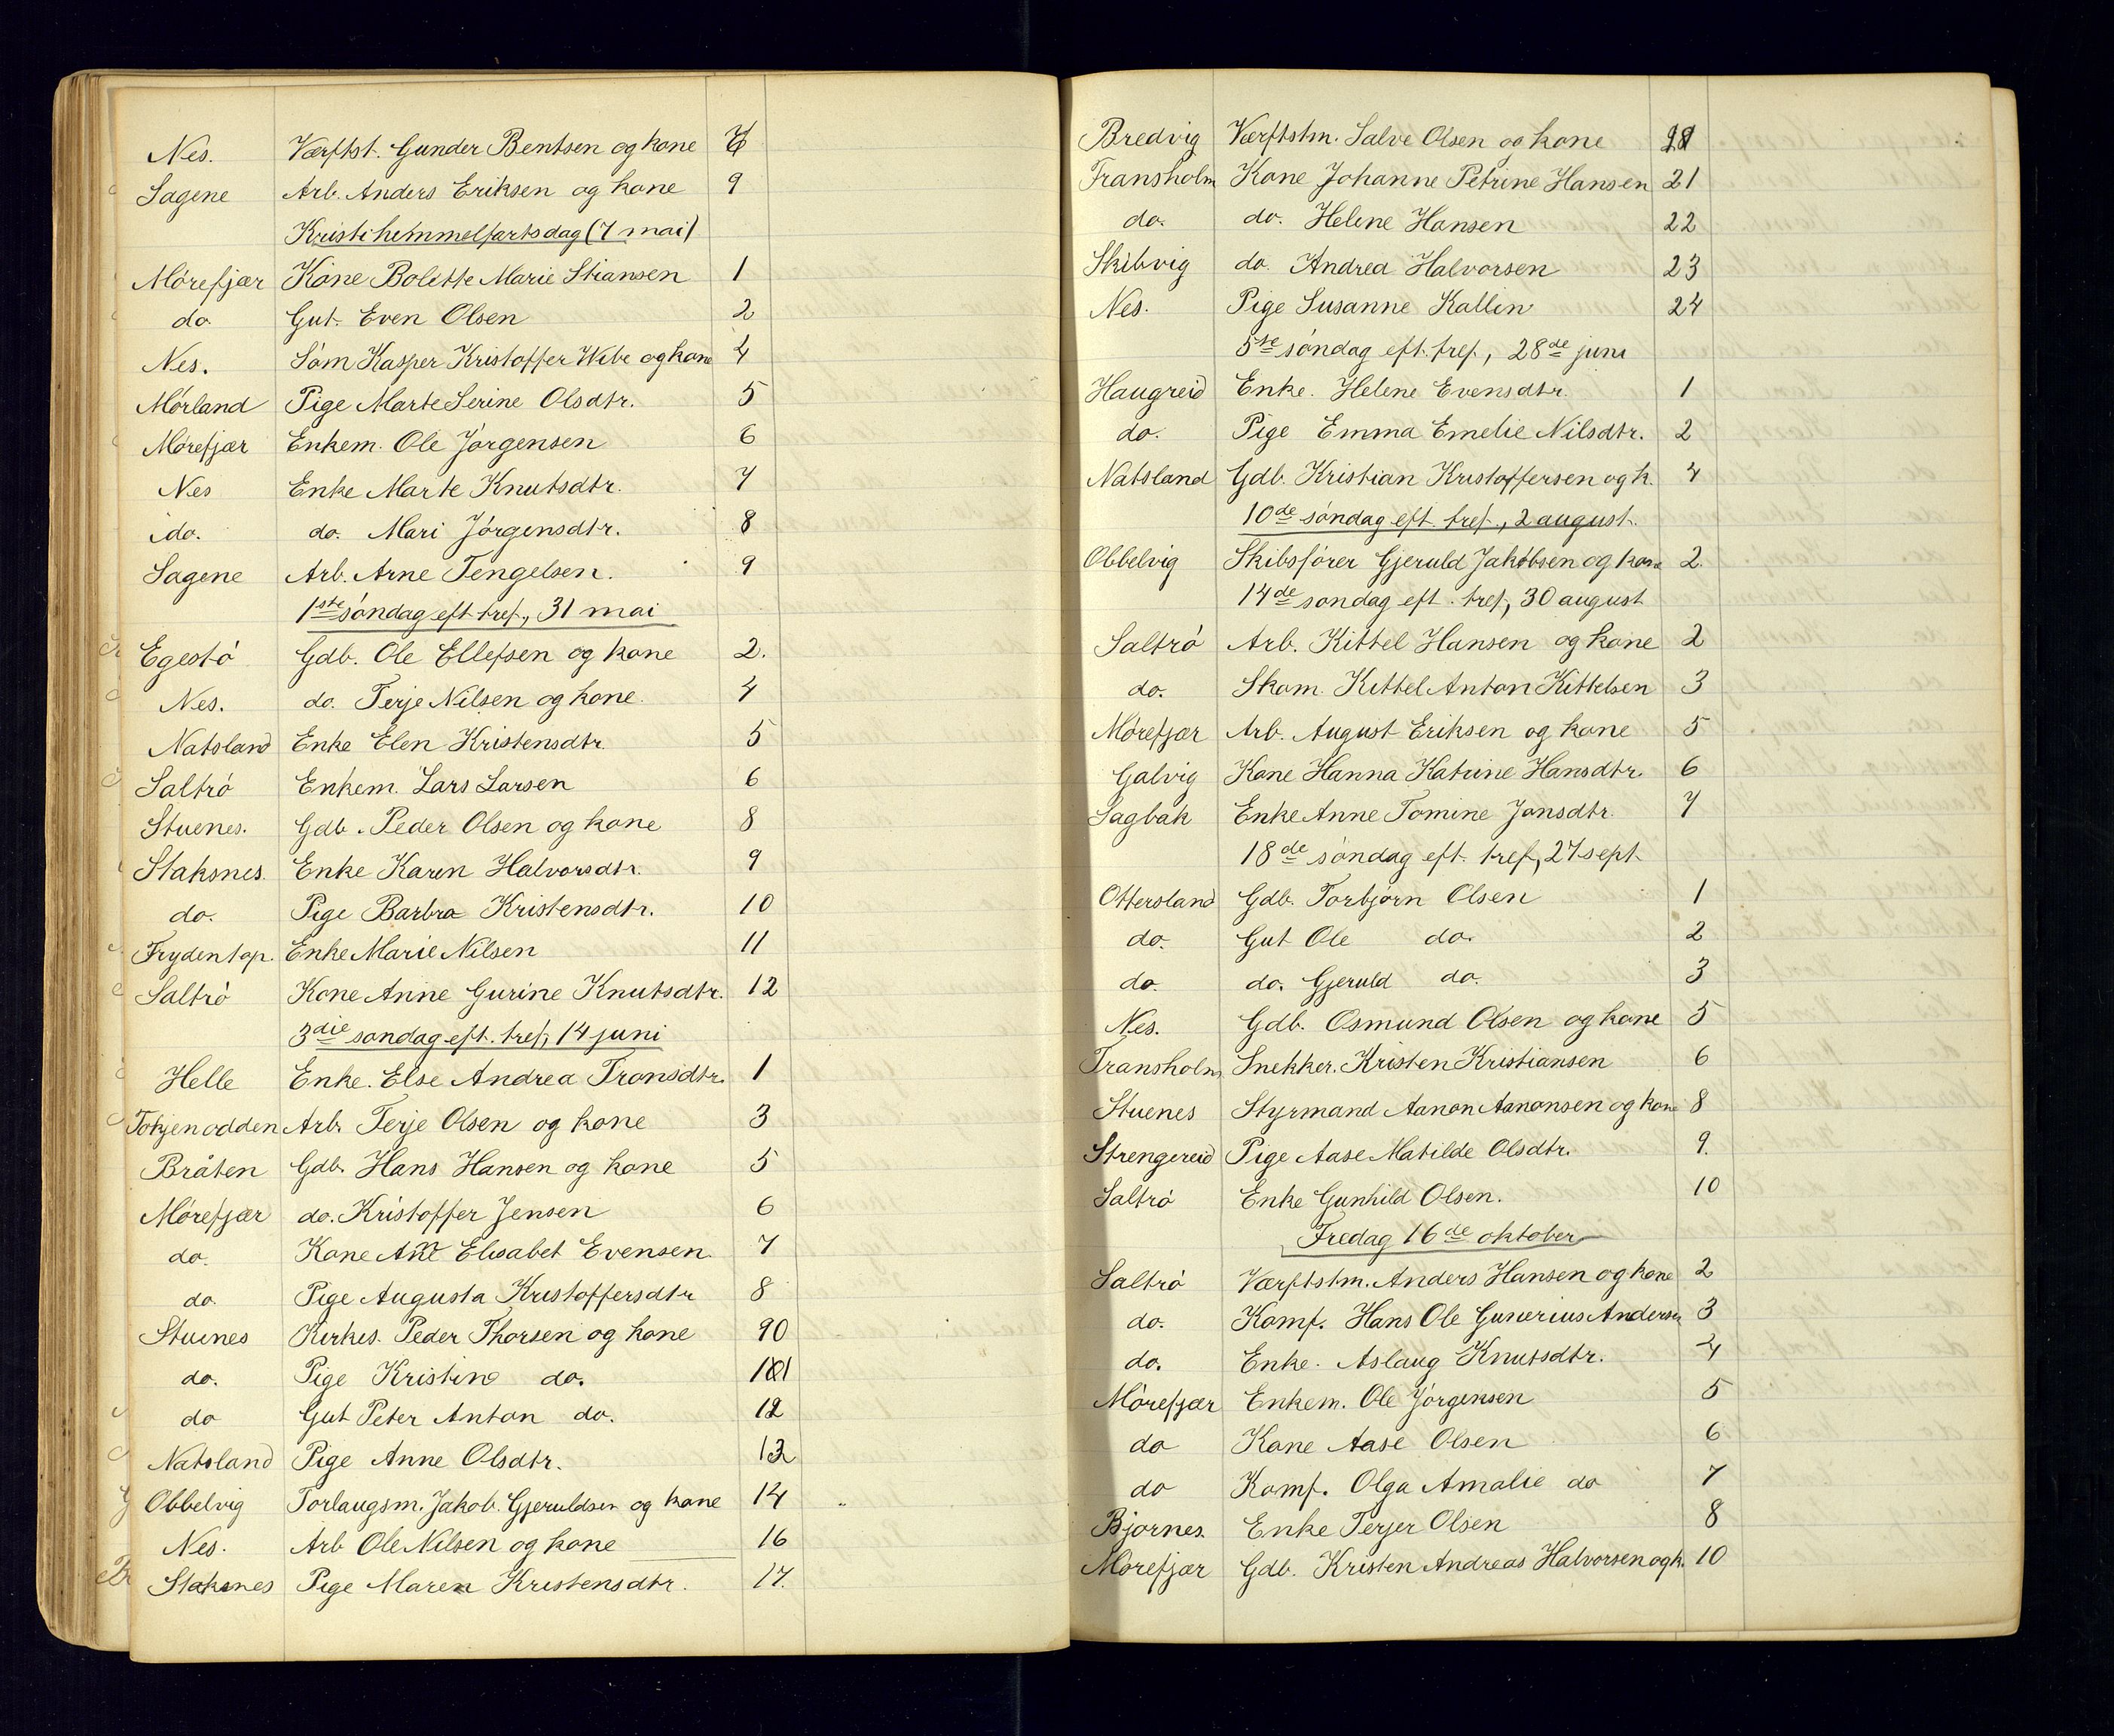 Nes. Værftst. Gunder Bentsen og kone
Sagene Arb. Anders Eriksen og kone 9
Kristi himmelfartsdag (7 mai)
Mórefjær Kone Bolette Marie Stiansen 1
do Gut. Even Olsen 2
Nes. Sóm Kasper Kristoffer Wibe og kone 4
Mórland Pige Marte Serine Olsdtr. 5
Mórefjær Enkem. Ole Jórgensen 6
Nes Enke Marte Knutsdtr. 7
do. do. Mari Jórgensdtr. 8
Sagene Arb. Arne Tengelsen. 9
1ste sóndag eft tref., 31 mai
Egestó Gdb. Ole Ellefsen og kone 2.
Nes. do. Terje Nilsen og kone. 4
Natsland Enke Elen Kristensdtr. 5
Saltró Enkem. Lars Larsen 6
Stuenes. Gdb. Peder Olsen og kone 8
Staksnes. Enke Karen Halvorsdtr. 9
do. Pige Barbra Kristensdtr. 10
Frydentop. Enke Marie Nilsen 11
Saltró Kone Anne Gurine Knutsdtr. 12
3die sondag eft. tref, 14 juni
Helle Enke. Else Andrea Tronsdtr. 1
Tokjenodden Arb. Terje Olsen og kone 3
Bråten Gdb. Hans Hansen og kone 5
Mórefjær do. Kristoffer Jensen 6
do. Kone Elisabet Evensen 7
do. Pige Augusta Kristoffersdtr 8
Stuenes Kirkes. Peder Thorsen og kone 90
do. Pige Kristine do. 11
do Gut Peter Anton do. 12
Natsland Pige Anne Olsdtr. 13
Obbelvig Torlaugsm. Jakob. Gjeruldsen og kone 14
Nes. Arb Ole Nilsen og kone 16
Staksnes Pige Maren Kristensdtr. 17.
Bredvig Værftstm. Salve Olsen og kone
Fransholm Kone Johanne Petrine Hansen 21
do. do. Helene Hansen 22
Skibvig do. Andrea Halvorsen 23
Nes. Pige Susanne Kallin 24
5te sóndag eft. tref., 28de juni
Haugreid Enke. Helene Evensdtr. 1
do. Pige Emma Emelie Nilsdtr. 2
Natsland Gdb. Kristian Kristoffersen og k. 4
10de sóndag eft. tref., 2 august.
Obbelvig Skibsfórer Gjeruld Jakobsen og kone 2.
14de sondag eft. tref, 30 august
Saltró Arb. Kittel Hansen og kone 2
do. Skom. Kittel Anton Kittelsen 3
Mórefjær Arb. August Eriksen og kone 5
Galvig Kone Hanna Katrine Hansdtr. 6
Sagbak Enke Anne Tomine Jonsdtr. 7
18de sóndag eft. tref, 27 sept.
Ottersland Gdb. Torbjórn Olsen 1
do. Gut Ole do. 2
do. do. Gjeruld do. 3
Nes. Gdb. Osmund Olsen og kone 5
Fransholm. Snekker. Kristen Kristiansen 6
Stuenes Styrmand Aanon Aanonsen og kone 8
Strengereid Pige Aase Matilde Olsdtr. 9.
Saltró Enke Gunhild Olsen. 10
Fredag 16de oktober
Saltró Værftstm. Anders Hansen og kone 2
do. Komf. Hans Ole Gunerius Andersen 3
do. Enke. Aslaug Knutsdtr. 4
Mórefjær Enkem. Ole Jórgensen 5
do Kone Aase Olsen 6
do Komf. Olga Amalie do 7
Bjornes. Enke Terjer Olsen 8
Mórefjær Gdb. Kristen Andreas Halvorsen og k. 10